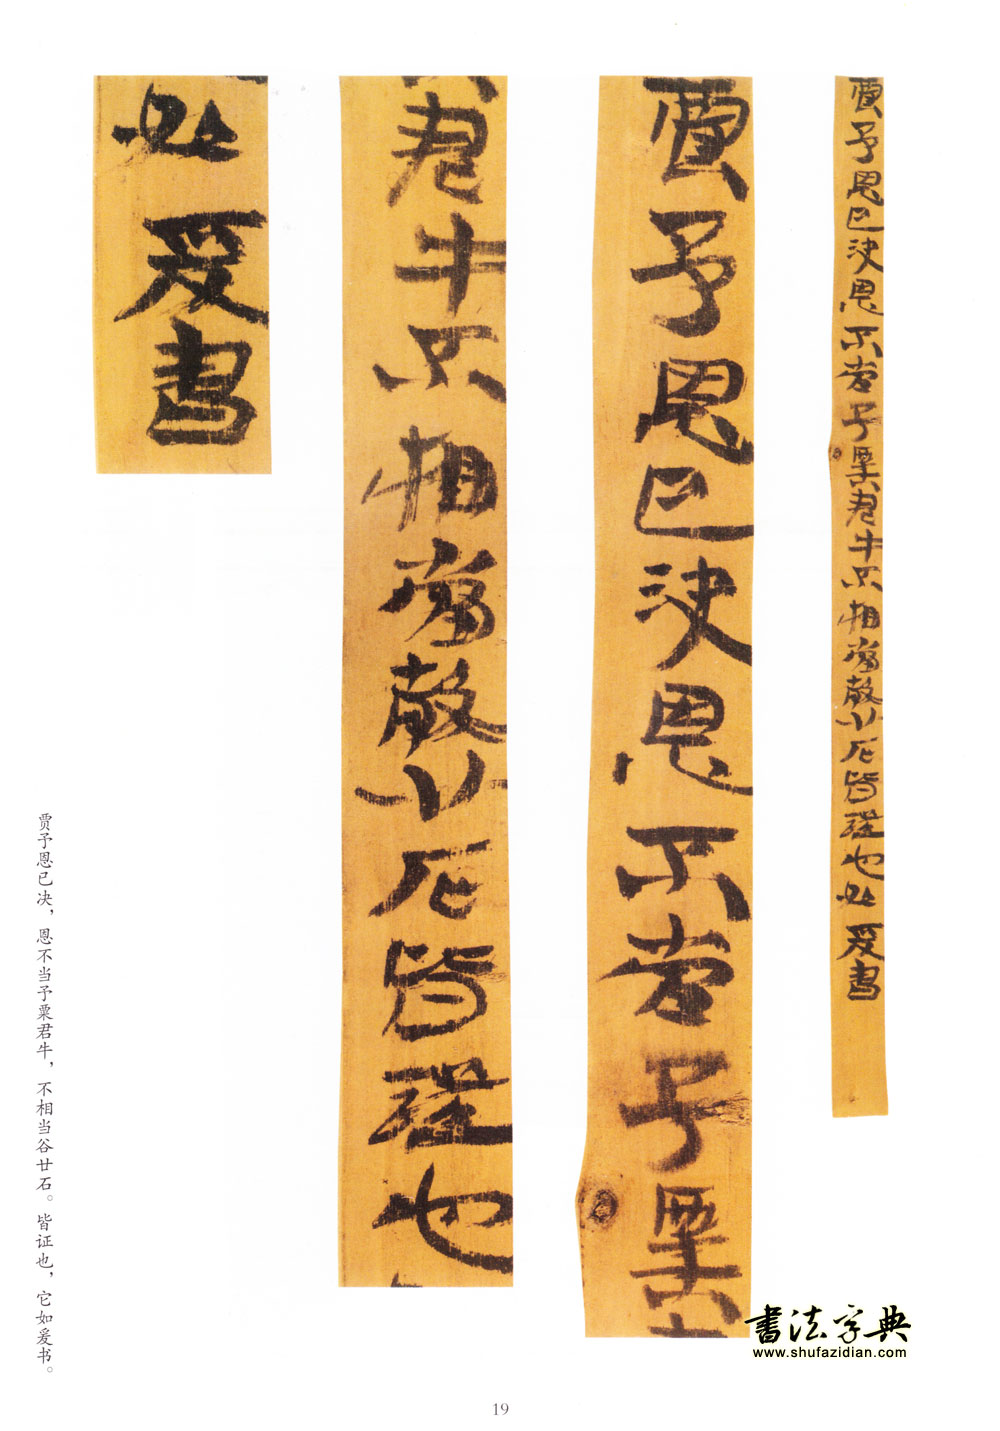 賈予恩已決恩不當予粟君牛不相當穀廿石皆證也如爰書
賈予恩已決恩不當予粟
君牛不相當穀廿石皆證也
如爰書
贾予恩已决，恩不当予粟君牛，不相当谷廿石。皆证也，它如爰书。
书法字典
www.shufazidian.com
19